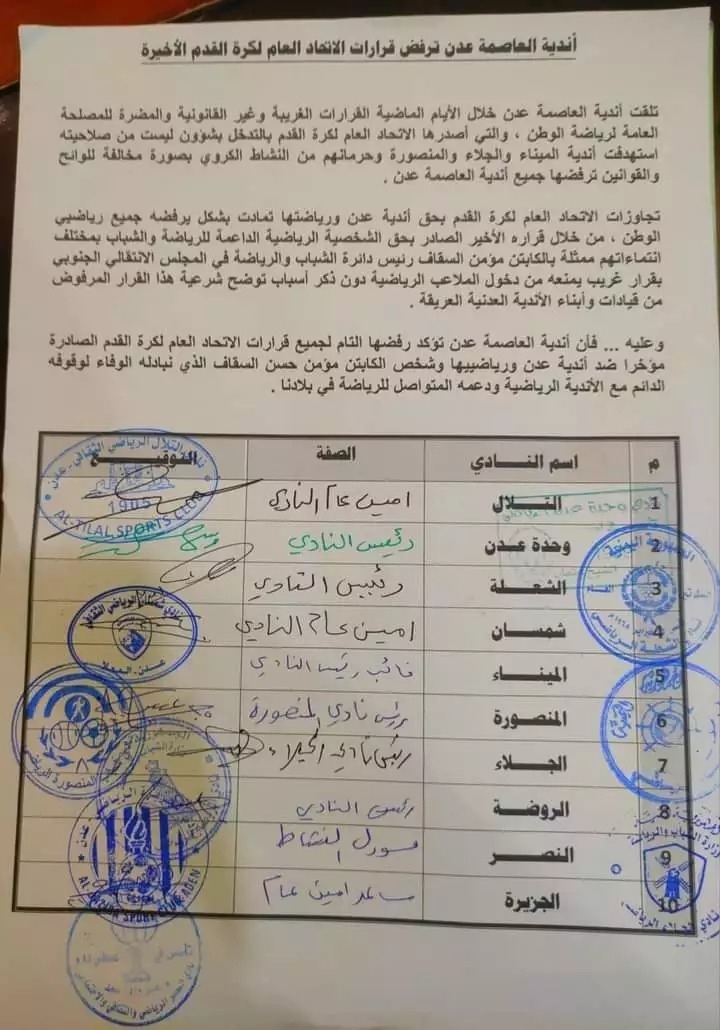 أندية العاصمة عدن ترفض قرارات الاتحاد العام لكرة القدم الأخيرة
تلقت أندية العاصمة عدن خلال الأيام الماضية القرارات الغريبة وغير القانونية والمضرة للمصلحة
العامة لرياضة الوطن ، والتي أصدرها الاتحاد العام لكرة القدم بالتدخل بشؤون ليست من صلاحيته
استهدفت أندية الميناء والجلاء والمنصورة وحرمانهم من النشاط الكروي بصورة مخالفة للوائح
والقوانين ترفضها جميع أندية العاصمة عدن .
تجاوزات الاتحاد العام لكرة القدم بحق أندية عدن ورياضتها تمادت بشكل يرفضه جميع رياضيي
الوطن ، من خلال قراره الأخير الصادر بحق الشخصية الرياضية الداعمة للرياضة والشباب بمختلف
انتماءاتهم ممثلة بالكابتن مؤمن السقاف رئيس دائرة الشباب والرياضة في المجلس الانتقالي الجنوبي
بقرار غريب يمنعه من دخول الملاعب الرياضية دون ذكر أسباب توضح شرعية هذا القرار المرفوض
من قيادات وأبناء الأندية العدنية العريقة .
وعليه ... فأن أندية العاصمة عدن تؤكد رفضها التام لجميع قرارات الاتحاد العام لكرة القدم الصادرة
مؤخرا ضد أندية عدن ورياضييها وشخص الكابتن مؤمن حسن السقاف الذي نبادله الوفاء لوقوفه
الدائم مع الأندية الرياضية ودعمه المتواصل للرياضة في بلادنا .
م اسم النادي الصفة التوقيع
1 التلال امين عام النادي
2 وحدة عدن رئيس النادي
3 الشعلة رئيس النادي
4 شمسان امين عام النادي
5 الميناء نائب رئيس النادي
6 المنصورة رئيس نادي المنصورة
7 الجلاء رئيس نادي الجلاء
8 الروضة رئيس النادي
9 النصر مسؤول النشاط
10 الجزيرة مساعد امين عام
نادي التلال الرياضي الثقافي - عدن
1905
AL-TILAL SPORTS CLUB